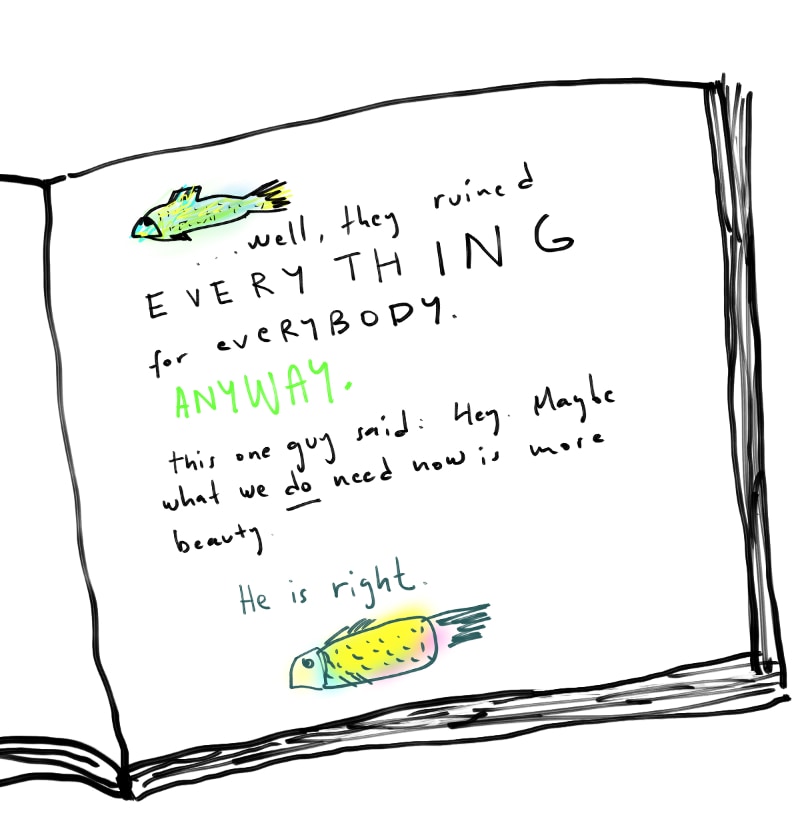 ...well, they ruined
EVERYTHING
for eveRYBODY.
ANYWAY.
this one guy said: Hey. Maybe
what we do need now is more
beauty.
He is right.